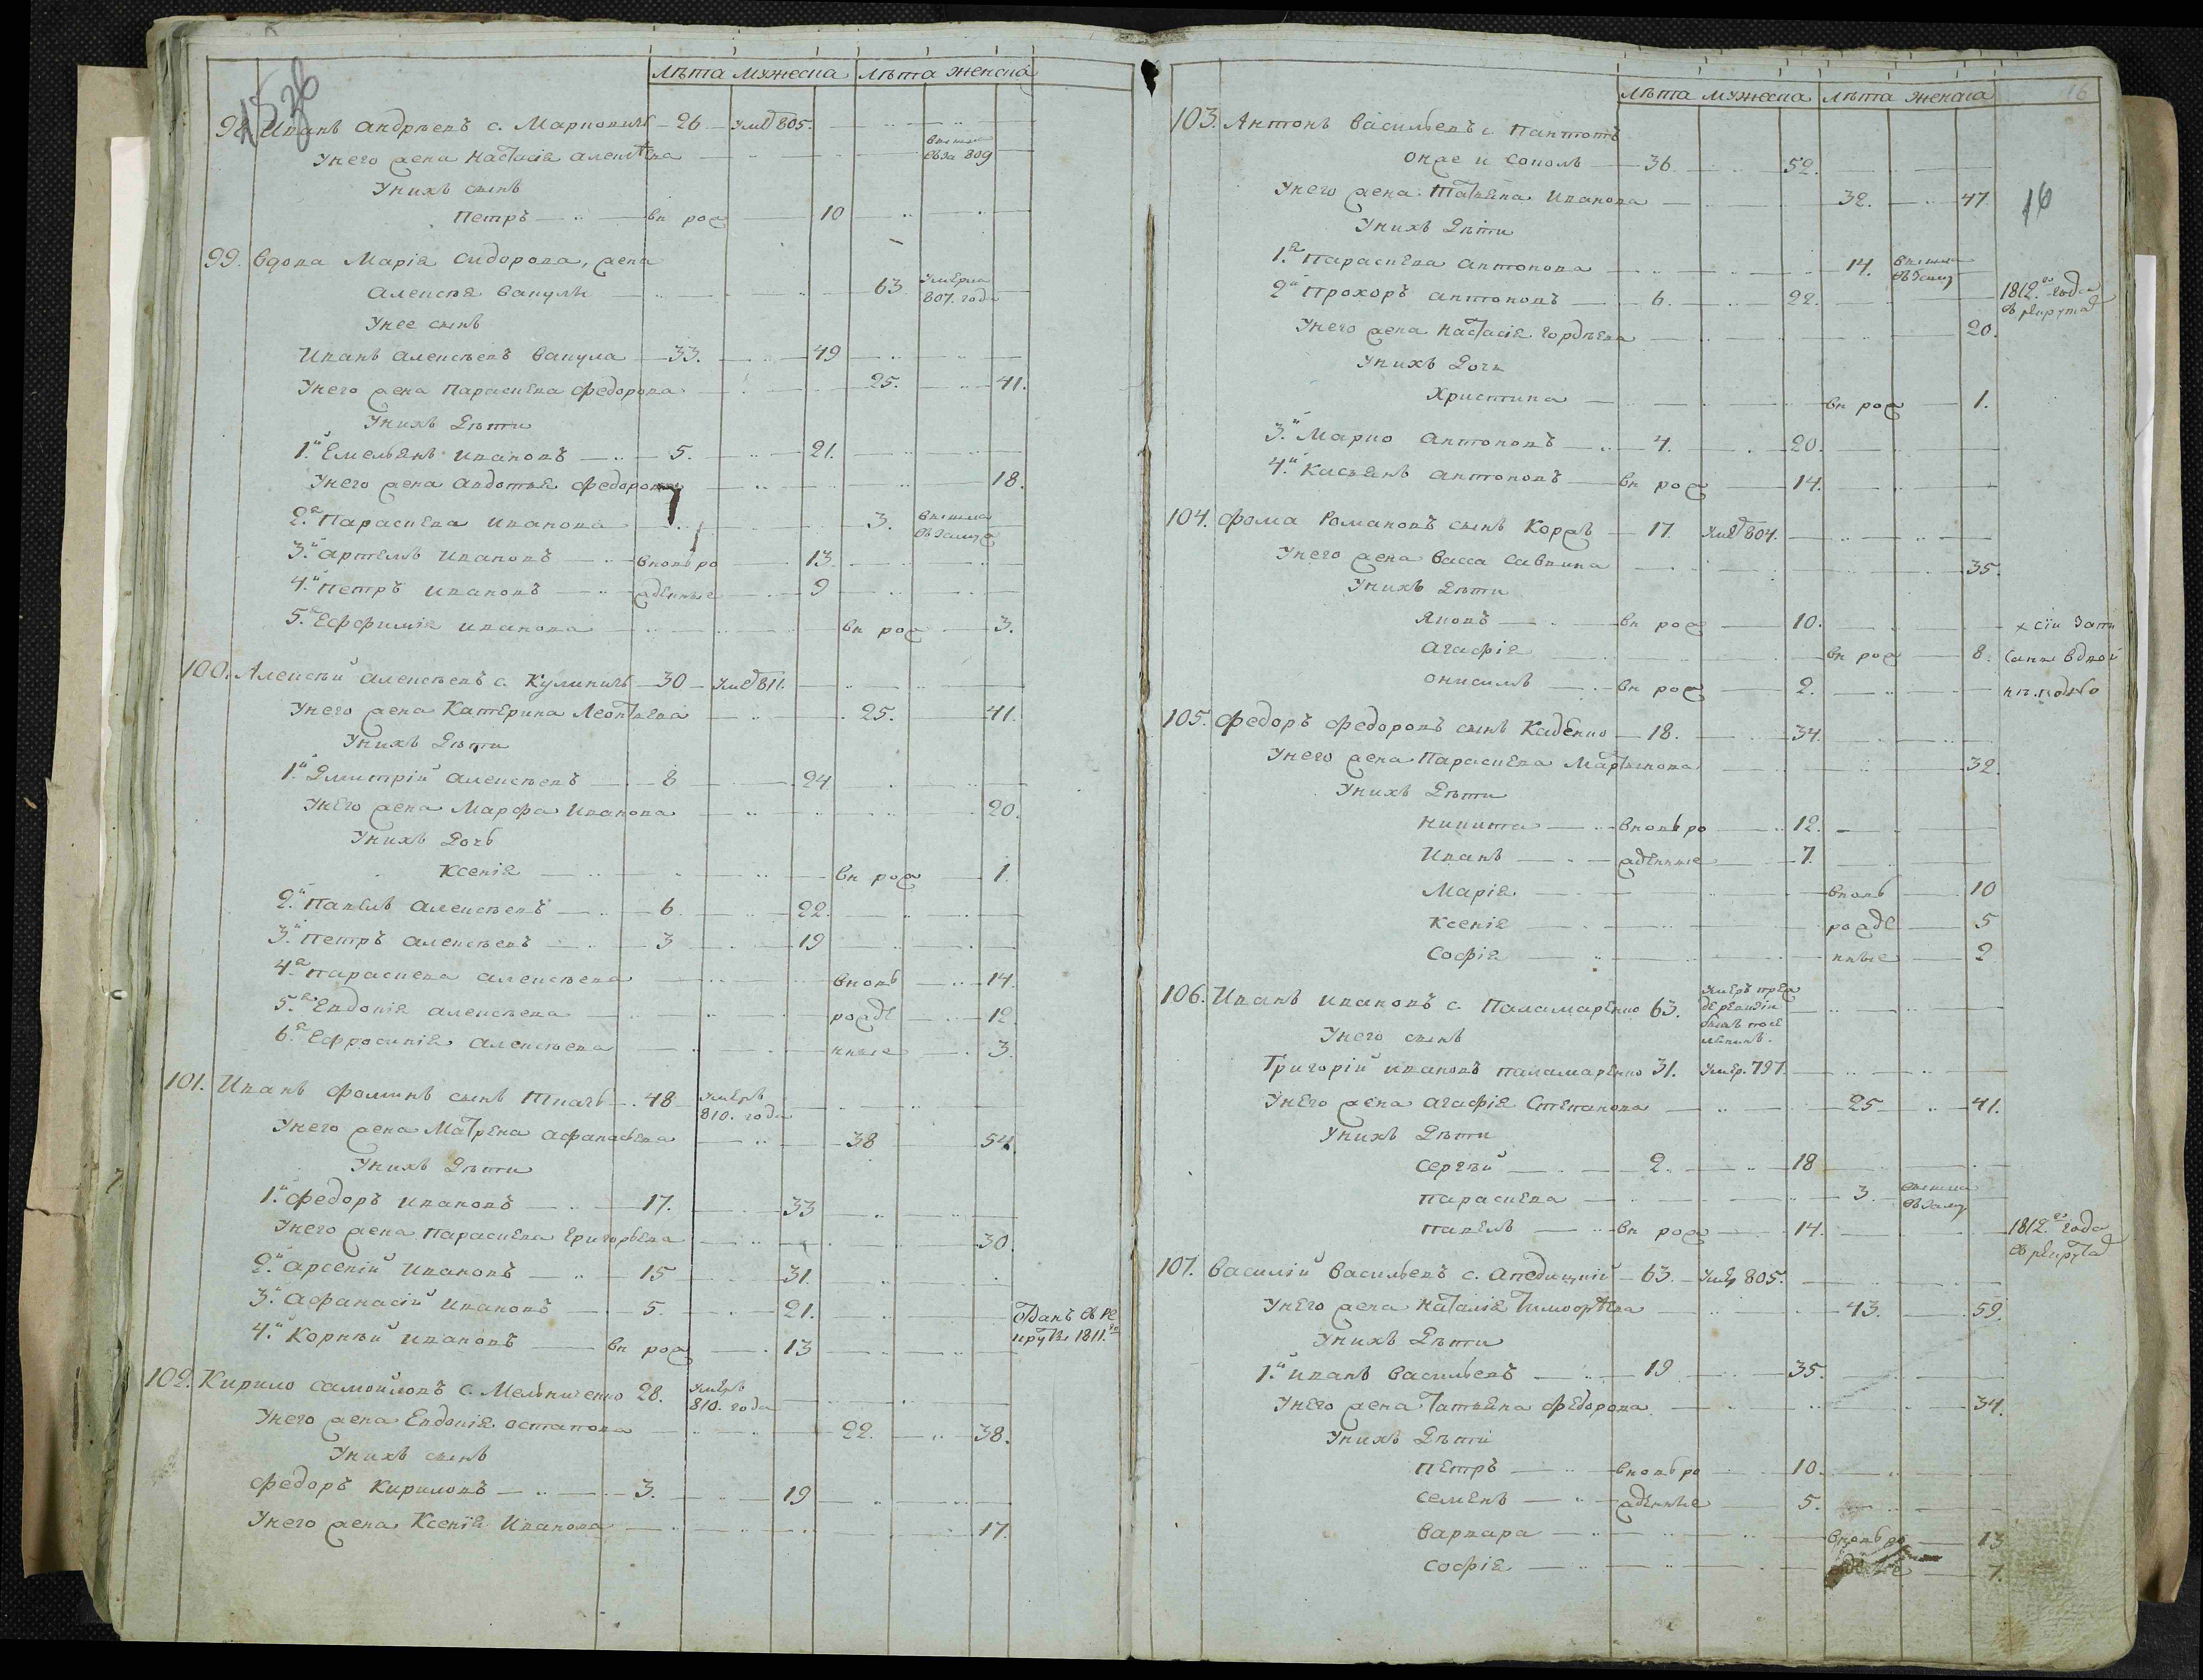 лѣта мужеска лѣта женска
98. Иванъ андрѣевъ с. Марковичъ 26 умер 805.
Унего жена Настасія алексѣева вышла въ за 809
Унихъ сынъ
Петръ вн рож 10
99. вдова Марія сидорова, жена
алексѣя вакулы 63 умерла 807. года
Унее сынъ
Иванъ алексѣевъ вакула 33. 49
Унего жена Параскева федорова 25. 41.
Унихъ дѣти
1.й Емельянъ ивановъ 5. 21.
Унего жена авдотья федорова 18.
2.я Параскева иванова 3. вышла въ замуж
3.й артемъ ивановъ вновь ро 13.
4.й петръ ивановъ жденные 9
5.я Ефимія иванова вн рож 3.
100. Алексѣй алексѣевъ с. Кулиничъ 30 умер 811.
Унего жена Катерина Леонтьева 25. 41.
Унихъ дѣти
1.й Дмитрій алексѣевъ 8 24
Унего жена Марфа Иванова 20.
Унихъ дочь
Ксенія вн рож 1.
2.й павелъ алексѣевъ 6. 22.
3.й петръ алексѣевъ 3 19
4.я параскева алексѣева вновь 14.
5.я Евдокія алексѣева рожде 12
6.я Ефросинія алексѣева нные 3.
101. Иванъ фоминъ сынъ Ткачъ 48 умеръ 810. года
Унего жена Матрена афанасьева 38 54.
Унихъ дѣти
1.й федоръ ивановъ 17. 33
Унего жена параскева григорьева 30.
2.й арсеній ивановъ 15 31.
3.й афанасій ивановъ 5. 21. Отданъ въ ре круты 1811.го
4.й Корнѣй ивановъ вн рож 13
102. Кирило самойловъ с. Мельниченко 28. умеръ 810. года
Унего жена Евдокія остапова 22. 38.
Унихъ сынъ
федоръ Кириловъ 3. 19
Унего жена Ксенія Иванова 17.
лѣта мужеска лѣта женска 16
103. Антонъ васильевъ с. Пантотъ
онже и соколъ 36 52.
Унего жена Татьяна иванова 32. 47 16
Унихъ дѣти
1.я Параскева антонова 14. вышла въ замуж
2.й Прохоръ антоновъ 6. 22. 1812.го года въ рекрута
Унего жена настасія гордѣева 20.
Унихъ дочь
Христина вн рож 1.
3.й Марко антоновъ 4. 20.
4.й Касьянъ антоновъ вн рож 14.
104. фома Романовъ сынъ Коржъ 17. умер 804.
Унего жена васса савкина 35.
Унихъ дѣти
Яковъ вн рож 10. х сіи
агафія вн рож 8.
онисимъ вн рож 2.
105. федоръ федоровъ сынъ Каденко 18. 34.
Унего жена Параскева Мартынова 32.
Унихъ дѣти
никита вновь ро 12.
Иванъ жденные 7.
Марія вновь 10
Ксенія рожде 5
Софія нные 2
106. Иванъ ивановъ с. Паламаренко 63.
Унего сынъ
Григорій ивановъ паламаренко 31. умер. 797.
Унего жена агафія Степанова 25 41.
Унихъ дѣти
сергѣй 2. 18
параскева 3 вышла въ замуж
павелъ вн рож 14. 1812.го года въ рекрута
107. василій васильевъ с. 63. умер 805.
Унего жена наталія тимофѣева 43. 59.
Унихъ дѣти
1.й иванъ васильевъ 19 35.
Унего жена татьяна федорова 34.
Унихъ дѣти
петръ вновь ро 10.
семенъ жденные 5.
варвара вновь ро 13
софія 7.